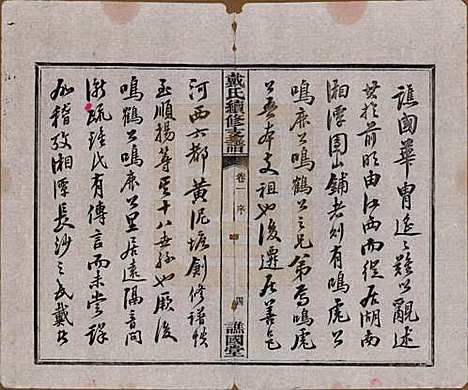 譙國華胄遙遙難以觀述
共於前明由江西而徙居湖南
湘潭圓山鋪老列有鳴虎公
鳴鹿公鳴鶴公三兄弟焉鳴虎
公吾本支祖也後遷居善邑
戴氏續修支譜
卷二
序
四
譙國堂
河西六都黃泥塘創修譜牒
丞順揚等至十八世孫也厥後
鳴鶴公鳴鹿公里居遠隔音問
漸疏雖氏有傳言而未嘗詳
加稽考湘潭長沙之氏戴者